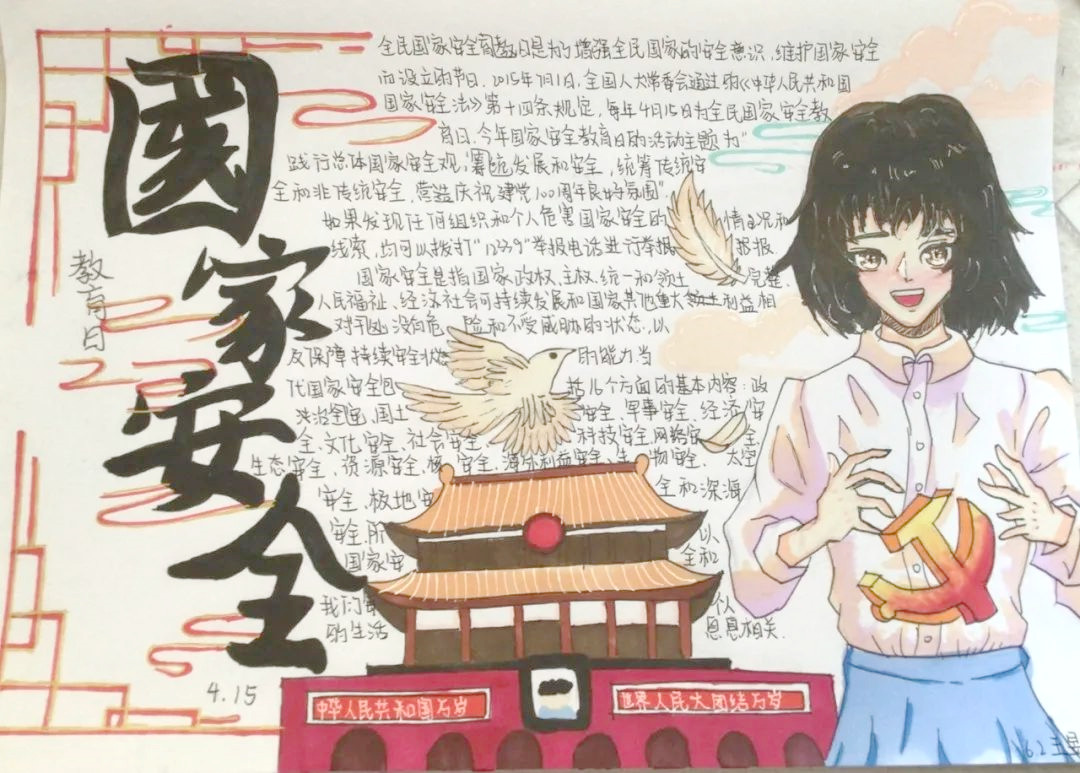 國家安全
教育日
全民国家安全教育日是为了增强全民国家的安全意识,维护国家安全
而设立的节日.2015年7月1日,全国人大常委会通过的《中华人民共和国
国家安全法》第十四条规定,每年4月15日为全民国家安全教
育日,今年国家安全教育日的活动主题为"
践行总体国家安全观,筹统发展和安全,统筹传统安
全和非传统安全,营造庆祝建党100周年良好氛围"
如果发现任何组织和个人危害国家安全的情况和
线索,均可以拨打"12339"举报电话进行举报
国家安全是指国家政权、主权、统一和领土完整、
人民福祉、经济社会可持续发展和国家其他重大利益相
对 没有危险和不受威胁的状态,以
及保障持续安全状态的能力当
代国家安全包括 几个方面的基本内容:政
治安全、国土安全、军事安全、经济安
全、文化安全、社会安全、科技安全、网络安全、
生态安全、资源安全、核安全、海外利益安全、生物安全、太空
安全、极地安全和深海
安全.所以
国家安全和
我们
的生活息息相关.
4.15
中华人民共和国万岁
世界人民大团结万岁